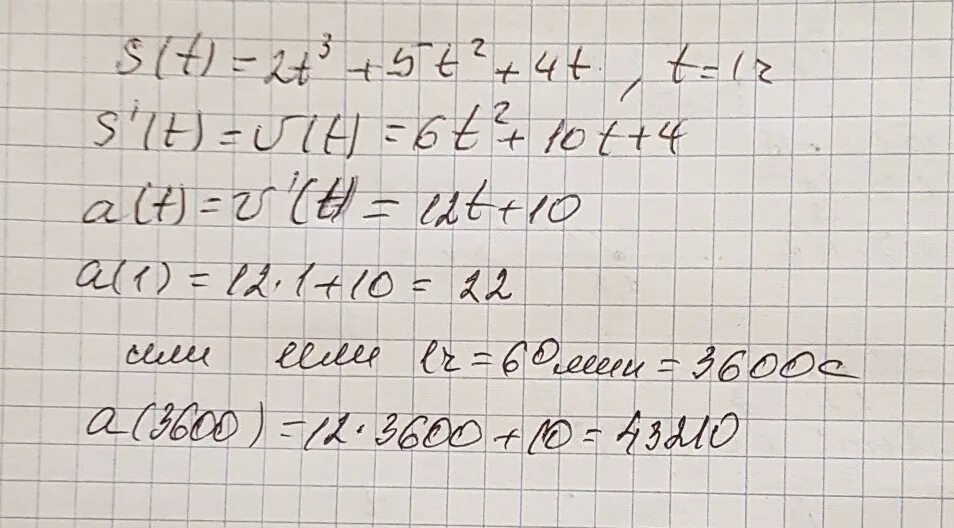 S(t) = 2t³ + 5t² + 4t, t = 1ч
S'(t) = υ(t) = 6t² + 10t + 4
a(t) = υ'(t) = 12t + 10
a(1) = 12·1 + 10 = 22
или если 1ч = 60мин = 3600с
a(3600) = 12·3600 + 10 = 43210